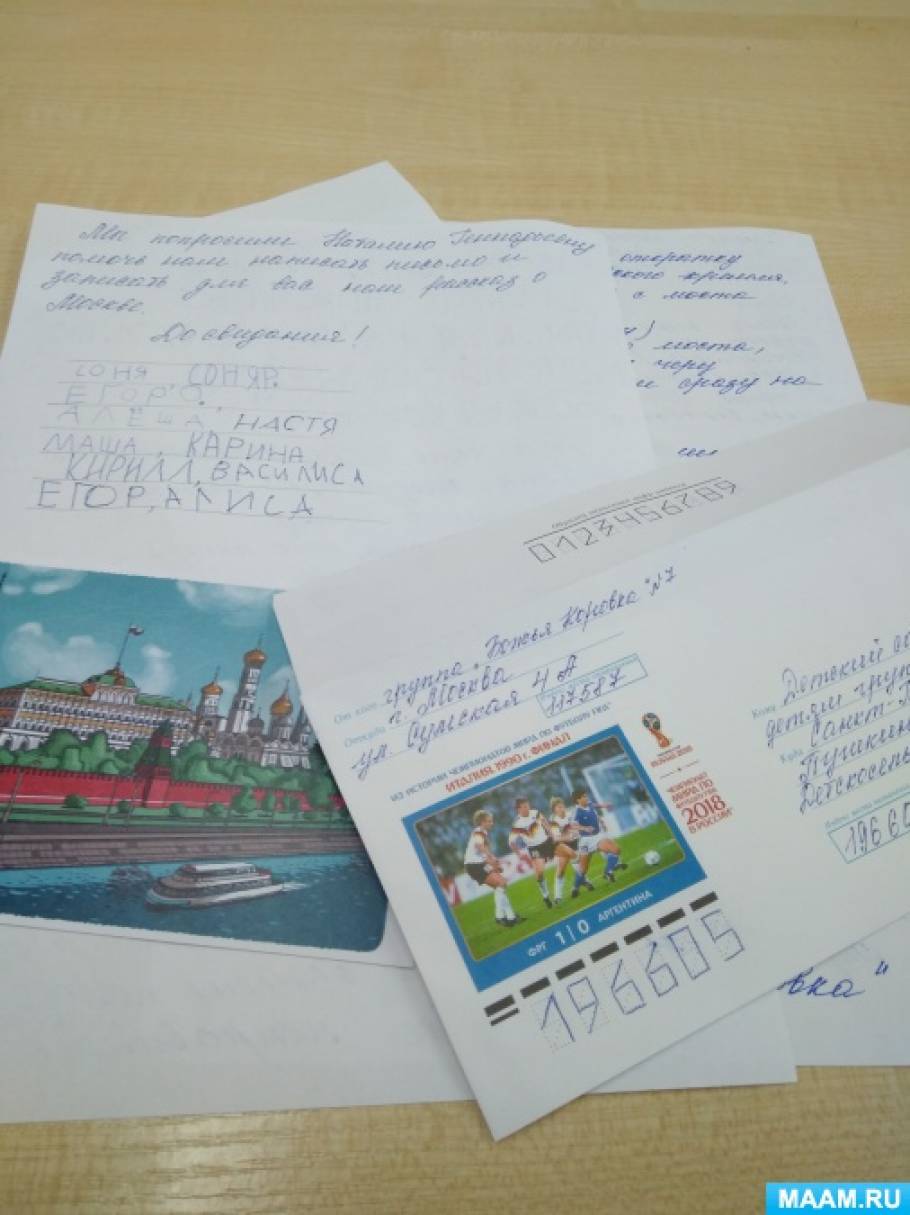 Мы попросили Наталию Геннадьевну
помочь нам написать письмо и
записать для вас наш рассказ о
Москве.
До свидания!
СОНЯ СОНЯР.
ЕГОР О.
АЛЁША, НАСТЯ
МАША, КАРИНА
КИРИЛЛ, ВАСИЛИСА
ЕГОР, АЛИСА
открытку
с моста
моста,
и сразу на
0123456789
группа "Божья Коровка" №7
От кого
г. Москва
Откуда
ул. Сумская 4А
117587
ИЗ ИСТОРИИ ЧЕМПИОНАТОВ МИРА ПО ФУТБОЛУ FIFA
ИТАЛИЯ 1990 г. ФИНАЛ
ЧЕМПИОНАТ
МИРА ПО
2018
В РОССИИ
ФРГ 1|0 АРГЕНТИНА
196605
Кому Детский са
детям груп
Куда Санкт-П
Пушкин
Детскосель
19660
вка"
MAAM.RU